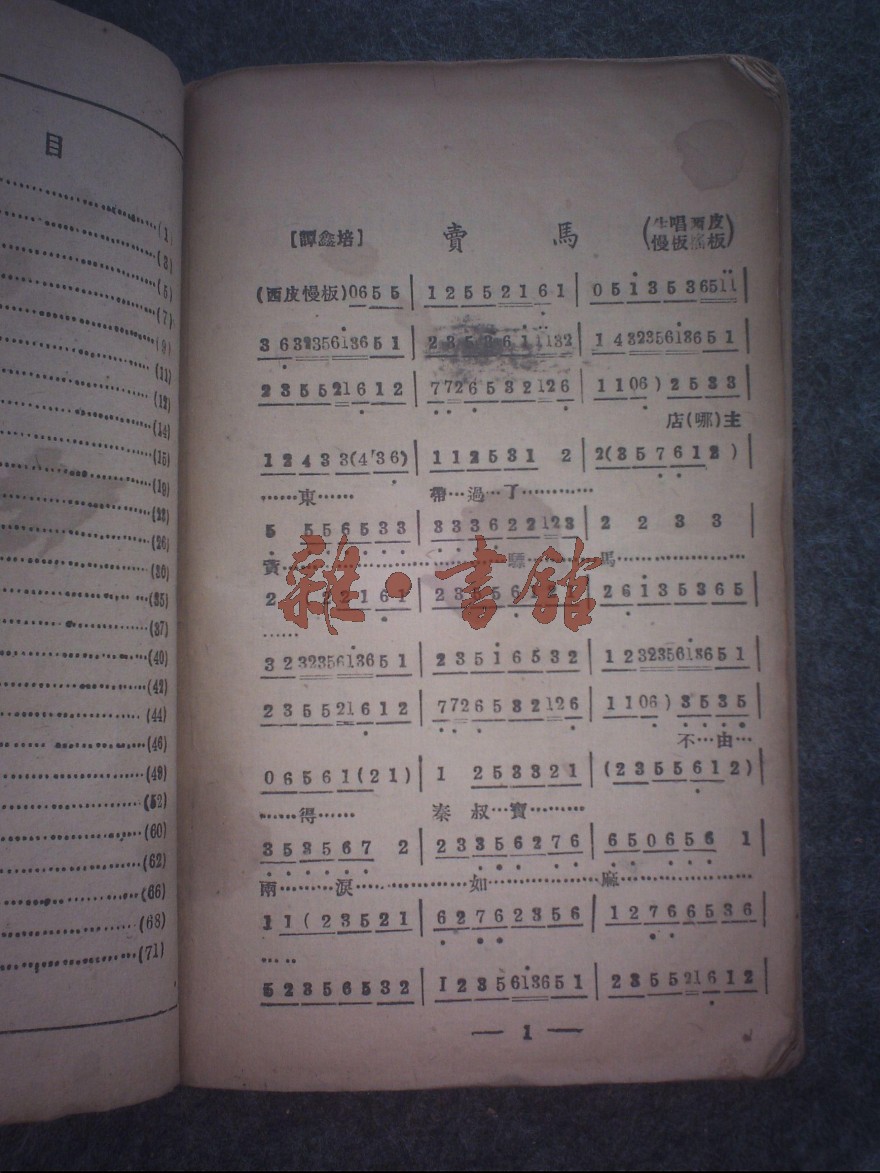 目
(1)
(3)
(5)
(7)
(9)
(11)
(12)
(14)
(15)
(19)
(23)
(26)
(30)
(35)
(37)
(40)
(42)
(44)
(46)
(49)
(52)
(60)
(62)
(66)
(68)
(71)
[譚鑫培] 賣 馬 (生唱西皮
慢板搖板)
(西皮慢板)0655 | 12552161 | 0513536511
363235613651 | | 14323561365 1
235521612 | 7726532126 | 1106) 2533
店(哪)主
12433(436) | 112531 2 | 2(357612)
……東…… 帶…過…了…………
5 556533 | 3336221 23 | 2 2 3 3
賣………驃………馬…………
2 22161 | | 26135365
……
32323561365 1 | 23516532 | 12323561365 1
235521612 | 7726532126 | 1106) 3535
不…由…
06561(21) | 1 253321 | (2355612)
……得…… 秦 叔…寶………
353567 2 | 23356276 | 650656 1
兩………淚…………如…………麻…………
11(23521 | 62762356 | 12766536
……
52356532 | 123561365 1 | 235521612
— 1 —
雜·書館